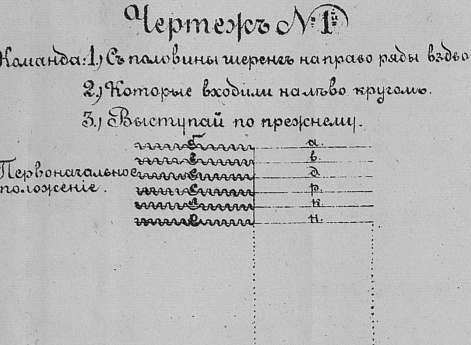 Чертежъ № 1й
Команда: 1) Съ половины шеренгъ направо ряды вздво
2) Которые входили налѣво кругомъ.
3) Выступай по прежнему.
Первоначальное
положеніе.
а.
в.
д.
р.
к.
н.